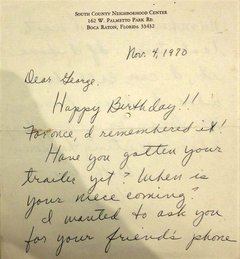 SOUTH COUNTY NEIGHBORHOOD CENTER
162 W. PALMETTO PARK RD.
BOCA RATON, FLORIDA 33432
Nov. 4, 1970
Dear George,
Happy Birthday!!
For once, I remembered it!
Have you gotten your
trailer yet? When is
your niece coming?
I wanted to ask you
for your friend's phone